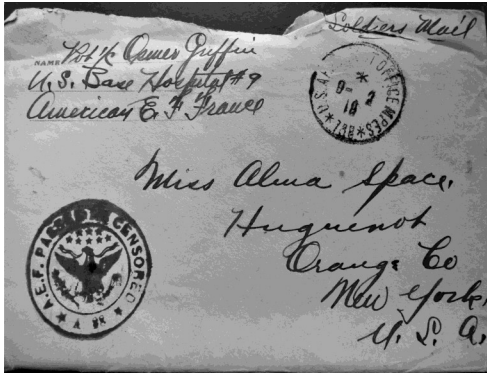 Soldiers Mail
NAME Pvt 1/c Osmer Griffin
U.S. Base Hospital #9
American E. F. France
U.S.A. OFFICE M.P.E.S. 738
9- 2
18
Miss Alma Space,
Huguenot
Orange Co
New York,
U. S. A.
A.E.F. PASSED CENSORED
A BR